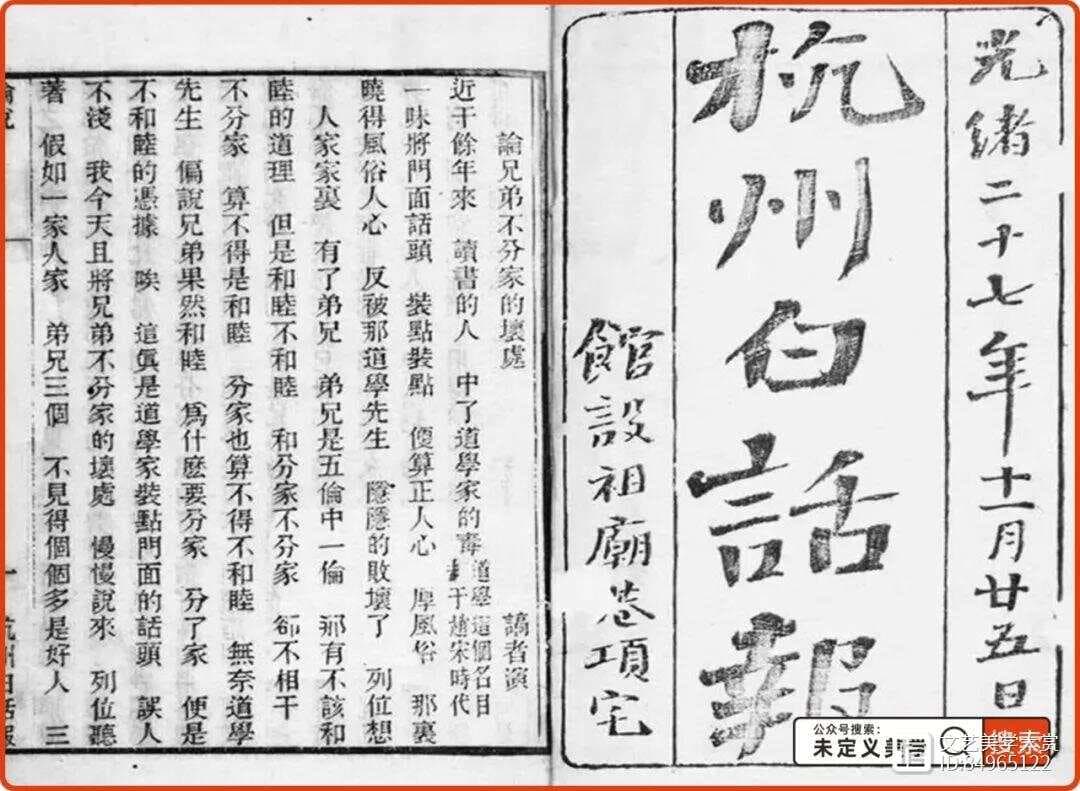 光緒二十七年十一月廿五日
杭州白話報
館設祖廟巷項宅
論兄弟不分家的壞處 謞者演
近千餘年來 讀書的人 中了道學家的毒 道學這個名目 於趙宋時代
一味將門面話頭 裝點裝點 便算正人心 厚風俗 那裏
曉得風俗人心 反被那道學先生 隱隱的敗壞了 列位想
人家家裏 有了弟兄 弟兄是五倫中一倫 那有不該和
睦的道理 但是和睦不和睦 和分家不分家 卻不相干
不分家 算不得是和睦 分家也算不得不和睦 無奈道學
先生 偏說兄弟果然和睦 爲什麽要分家 分了家 便是
不和睦的憑據 唉 這眞是道學家裝點門面的話頭 誤人
不淺 我今天且將兄弟不分家的壞處 慢慢說來 列位聽
著 假如一家人家 弟兄三個 不見得個個多是好人 三
論說
一 杭州白話報
公众号搜索:
未定义美学
搜索
文艺美学赏
ID:84965122